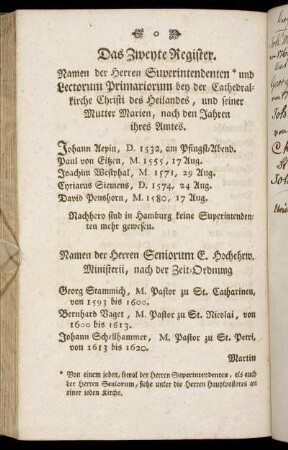 Das Zweyte Register.
Namen der Herren Superintendenten * und
Lectorum Primariorum bey der Cathedral-
kirche Christi des Heilandes, und seiner
Mutter Marien, nach den Jahren
ihres Amtes.
Johann Aepin, D. 1532, am Pfingst-Abend.
Paul von Eitzen, M. 1555, 17 Aug.
Joachim Westphal, M. 1571, 29 Aug.
Cyriacus Siemens, D. 1574, 24 Aug.
David Penshorn, M. 1580, 17 Aug.
Nachhero sind in Hamburg keine Superintenden-
ten mehr gewesen.
Namen der Herren Seniorum E. Hochehrw.
Ministerii, nach der Zeit-Ordnung
Georg Stammich, M. Pastor zu St. Catharinen,
von 1593 bis 1600.
Bernhard Vaget, M. Pastor zu St. Nicolai, von
1600 bis 1613.
Johann Schellhammer, M. Pastor zu St. Petri,
von 1613 bis 1620.
Martin
* Von einem jeden, sowol der Herren Superintendenten, als auch
der Herren Seniorum, siehe unter die Herren Hauptpastores an
einer jeden Kirche.